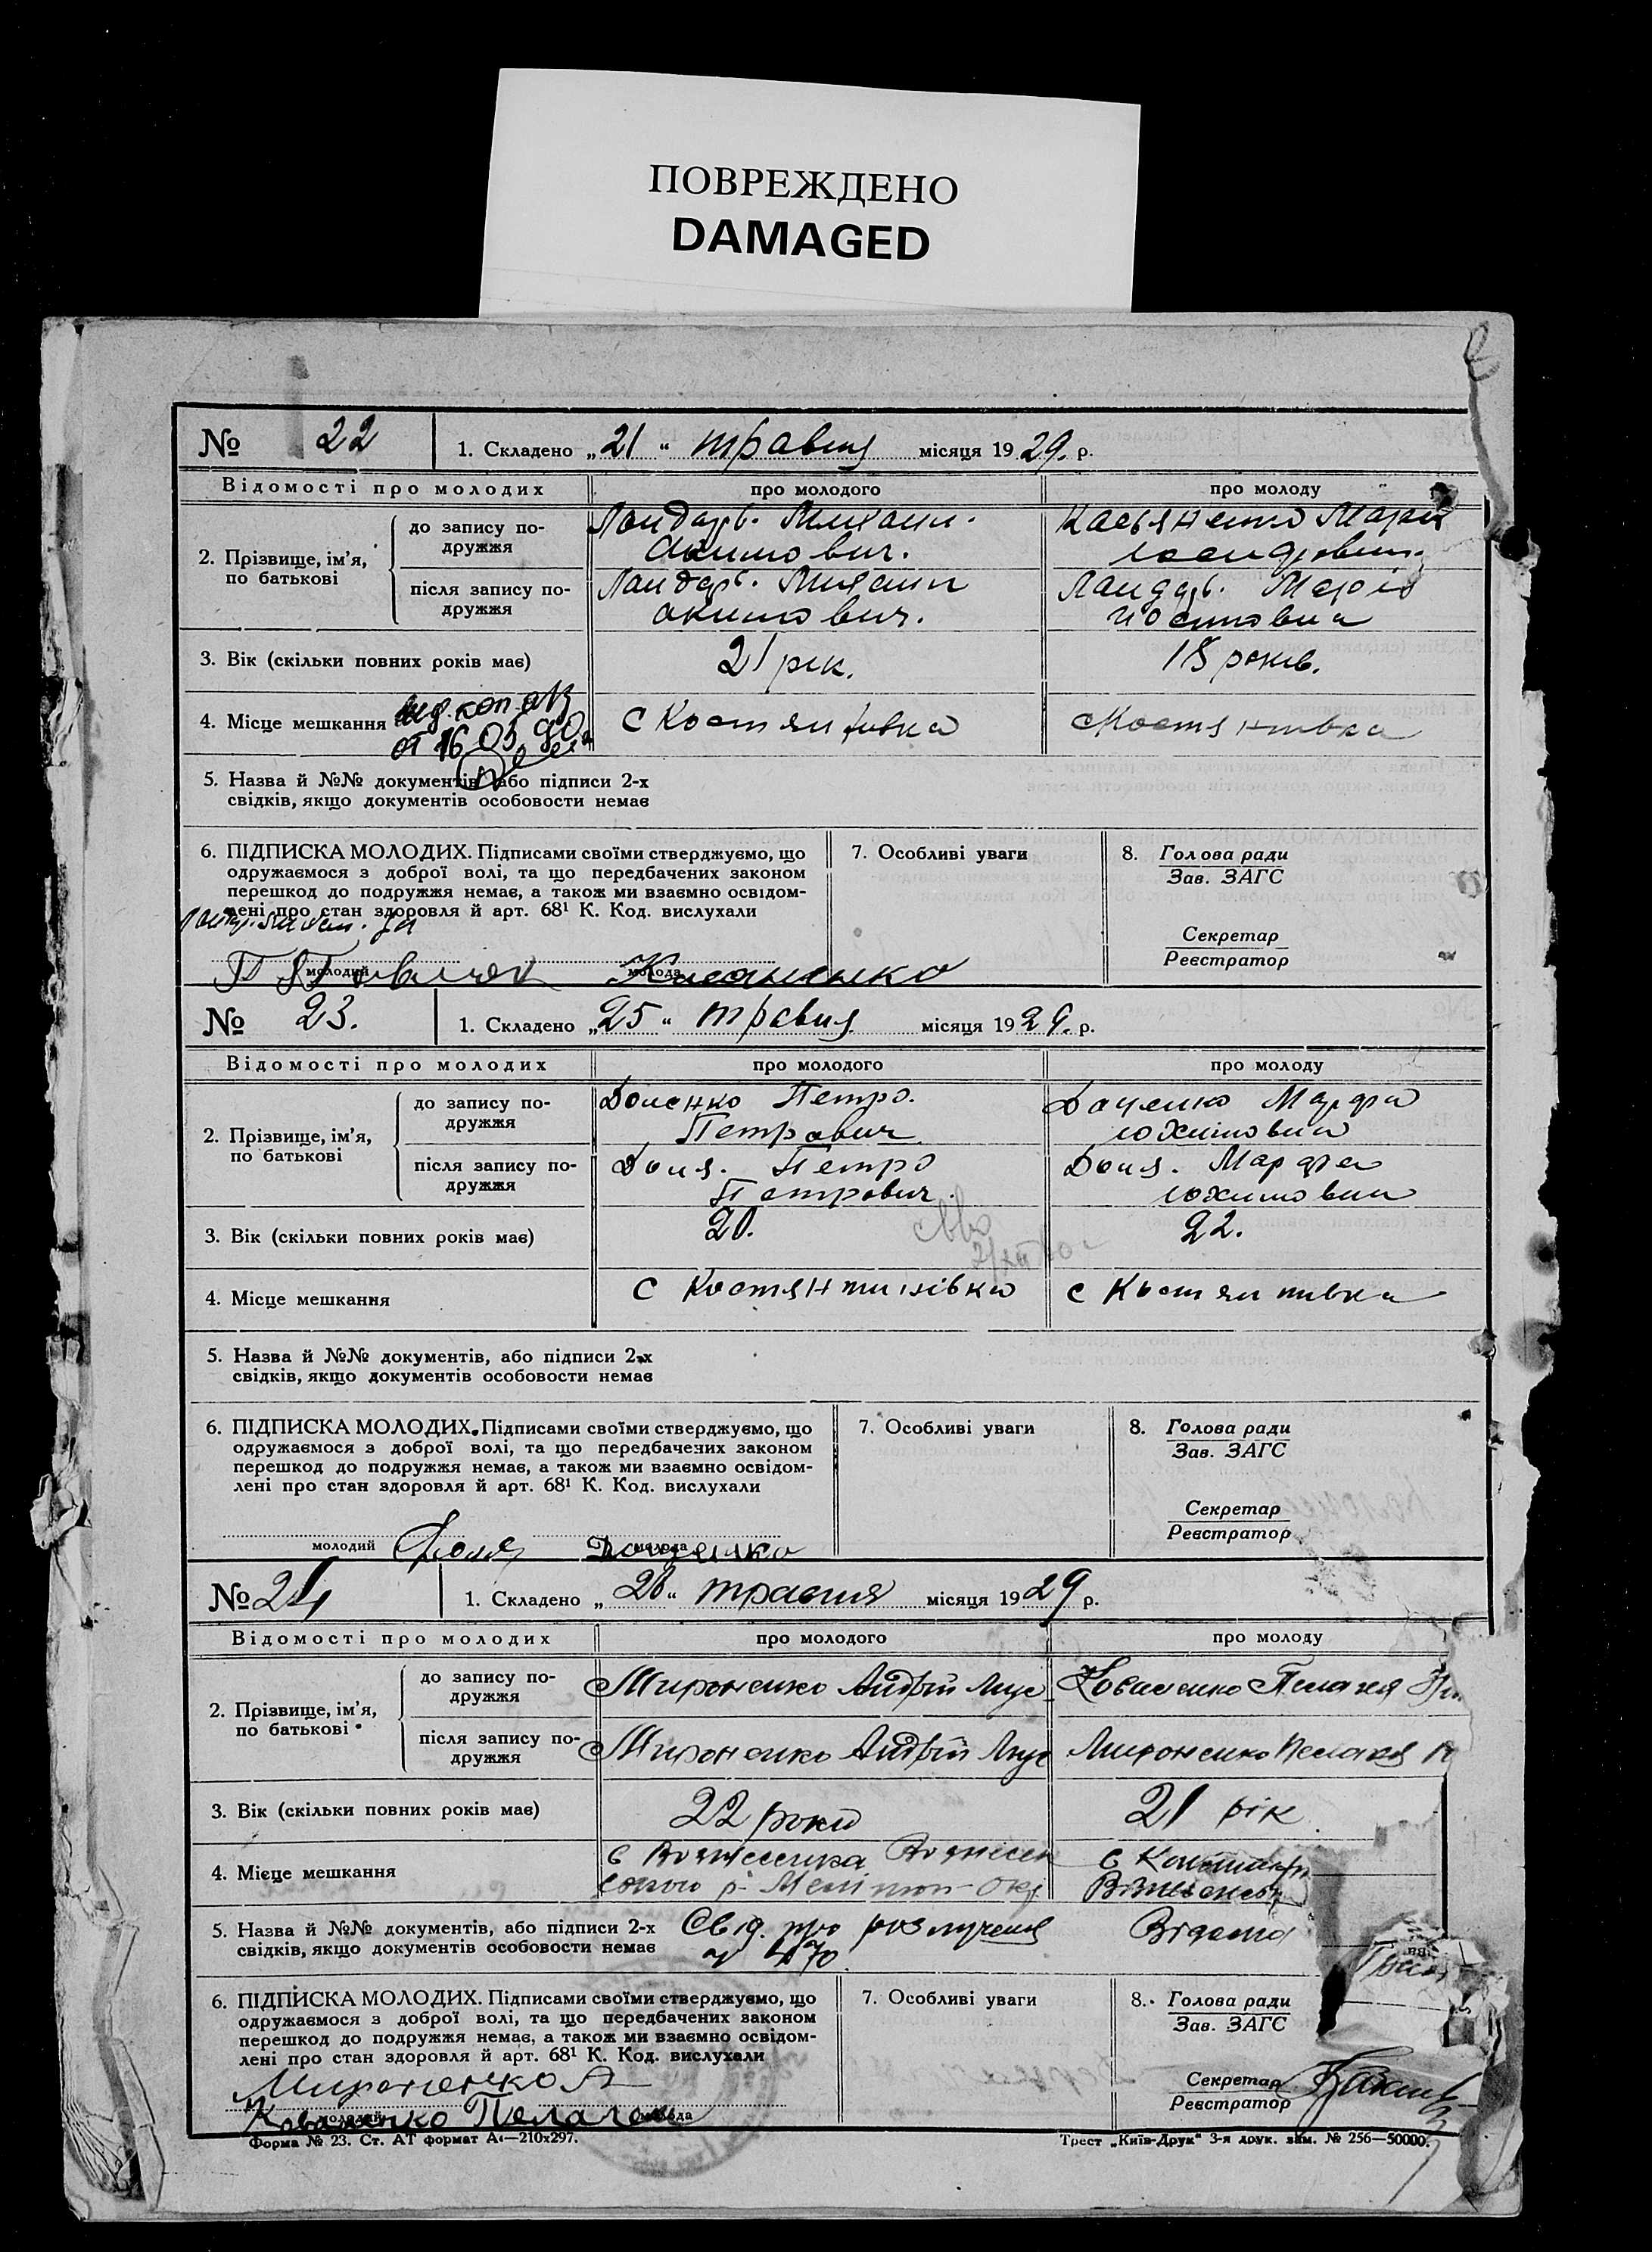 ПОВРЕЖДЕНО
DAMAGED
№ 22
1. Складено „21“ травня місяця 1929. р.
Відомості про молодих
про молодого
про молоду
2. Прізвище, ім'я, по батькові
до запису подружжя
Ландарь. Михаил.
Акимович.
Касьяненко Марія
після запису подружжя
Ландарь. Михаил
Акимович.
Ландарь. Марія
3. Вік (скільки повних років має)
21 рік.
18 років.
4. Місце мешкання
от 16 05
с Костянтивка
с Костянтивка
5. Назва й №№ документів, або підписи 2-х
свідків, якщо документів особовости немає
6. ПІДПИСКА МОЛОДИХ. Підписами своїми стверджуємо, що
одружаємося з доброї волі, та що передбачених законом
перешкод до подружжя немає, а також ми взаємно освідом-
лені про стан здоровля й арт. 68¹ К. Код. вислухали
7. Особливі уваги
8. Голова ради
Зав. ЗАГС
Секретар
Реєстратор
молодий
молода
Касяненко
№ 23.
1. Складено „25“ травня місяця 1929. р.
Відомості про молодих
про молодого
про молоду
2. Прізвище, ім'я, по батькові
до запису подружжя
Доленко Петро.
Петрович
Доценко Марфа
Юхимовна
після запису подружжя
Доля. Петро
Петрович.
Доля. Марфа
Юхимовна
3. Вік (скільки повних років має)
20.
22.
4. Місце мешкання
с Костянтинівка
с Костянтивка
5. Назва й №№ документів, або підписи 2-х
свідків, якщо документів особовости немає
6. ПІДПИСКА МОЛОДИХ. Підписами своїми стверджуємо, що
одружаємося з доброї волі, та що передбачених законом
перешкод до подружжя немає, а також ми взаємно освідом-
лені про стан здоровля й арт. 68¹ К. Код. вислухали
7. Особливі уваги
8. Голова ради
Зав. ЗАГС
Секретар
Реєстратор
молодий
молода
Доля
Доценко
№ 24
1. Складено „26“ травня місяця 1929 р.
Відомості про молодих
про молодого
про молоду
2. Прізвище, ім'я, по батькові
до запису подружжя
Мироненко Андрій Мус
Коваленко Пелагея
після запису подружжя
Мироненко Андрій Мус
Мироненко Пелагея
3. Вік (скільки повних років має)
22 роки
21 рік
4. Місце мешкання
с Вознесенка Вознесен
ського р- Меліітоп- окр.
с
5. Назва й №№ документів, або підписи 2-х
свідків, якщо документів особовости немає
Свід. про розлучення
6. ПІДПИСКА МОЛОДИХ. Підписами своїми стверджуємо, що
одружаємося з доброї волі, та що передбачених законом
перешкод до подружжя немає, а також ми взаємно освідом-
лені про стан здоровля й арт. 68¹ К. Код. вислухали
7. Особливі уваги
8. Голова ради
Зав. ЗАГС
Секретар
Реєстратор
Мироненко А
молодий
молода
Коваленко Пелагея
Форма № 23. Ст. АТ формат А4—210х297.
Трест „Київ-Друк“ 3-я друк. зам. № 256—50000.